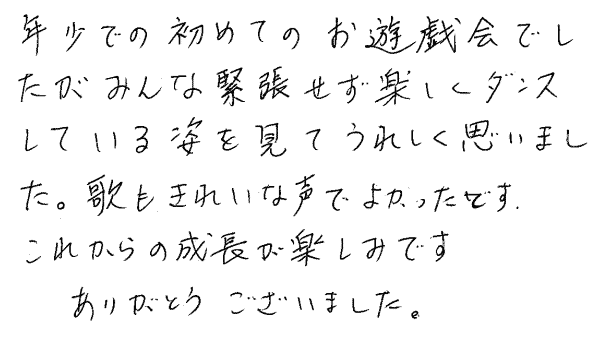 年少での初めてのお遊戯会でし
たがみんな緊張せず楽しくダンス
している姿を見てうれしく思いまし
た。歌もきれいな声でよかったです.
これからの成長が楽しみです
ありがとうございました。